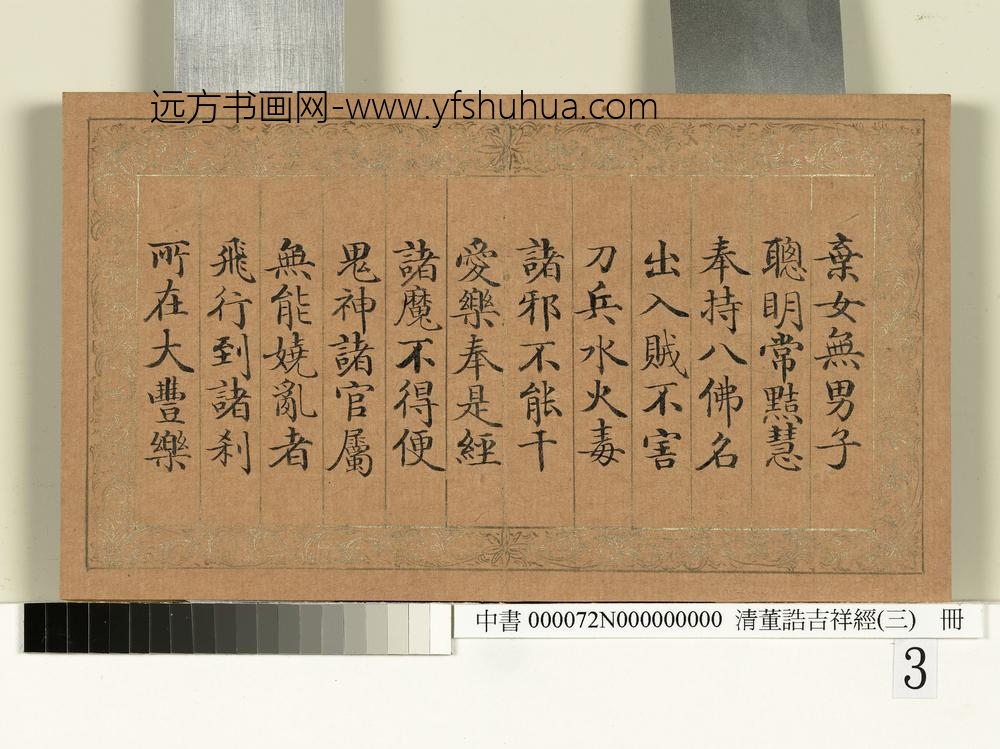 远方书画网-www.yfshuhua.com
棄女無男子
聰明常黠慧
奉持八佛名
出入賊不害
刀兵水火毒
諸邪不能干
愛樂奉是經
諸魔不得便
鬼神諸官屬
無能嬈亂者
飛行到諸剎
所在大豐樂
中書 000072N000000000 清董誥吉祥經(三) 冊
3